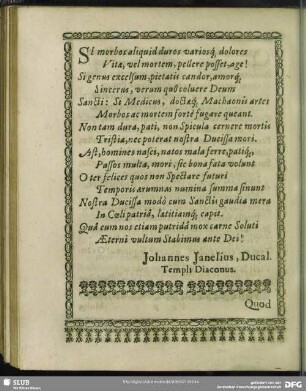 SI morbos aliquid duros variosq́, dolores
Vitæ, vel mortem, pellere posset, age!
Si genus excelsum, pietatis candor, amorq́,
Sincerus, verum quô coluere Deum
Sancti: Si Medicus, doctæq́, Machaonis artes
Morbos ac mortem fortè fugare queant.
Non tam dura, pati, non Spicula cernere mortis
Tristia, nec poterat nostra Ducissa mori.
Ast, homines nasci, natos mala ferre, patiq́,
Passos multa, mori, sic bona fata volunt
O ter felices quos non Spectare futuri
Temporis ærumnas numina summa sinunt
Nostra Ducissa modò cum Sanctis gaudia mera
In Cœli patriâ, latitiamq́, capit.
Quâ cum nos etiam putridâ mox carne Soluti
Æterni vultum Stabimus ante Dei!
Johannes Janelius, Ducal.
Templi Diaconus.
Quod
SLUB
Wir führen Wissen.
gefördert von der
Deutschen Forschungsgemeinschaft
DFG